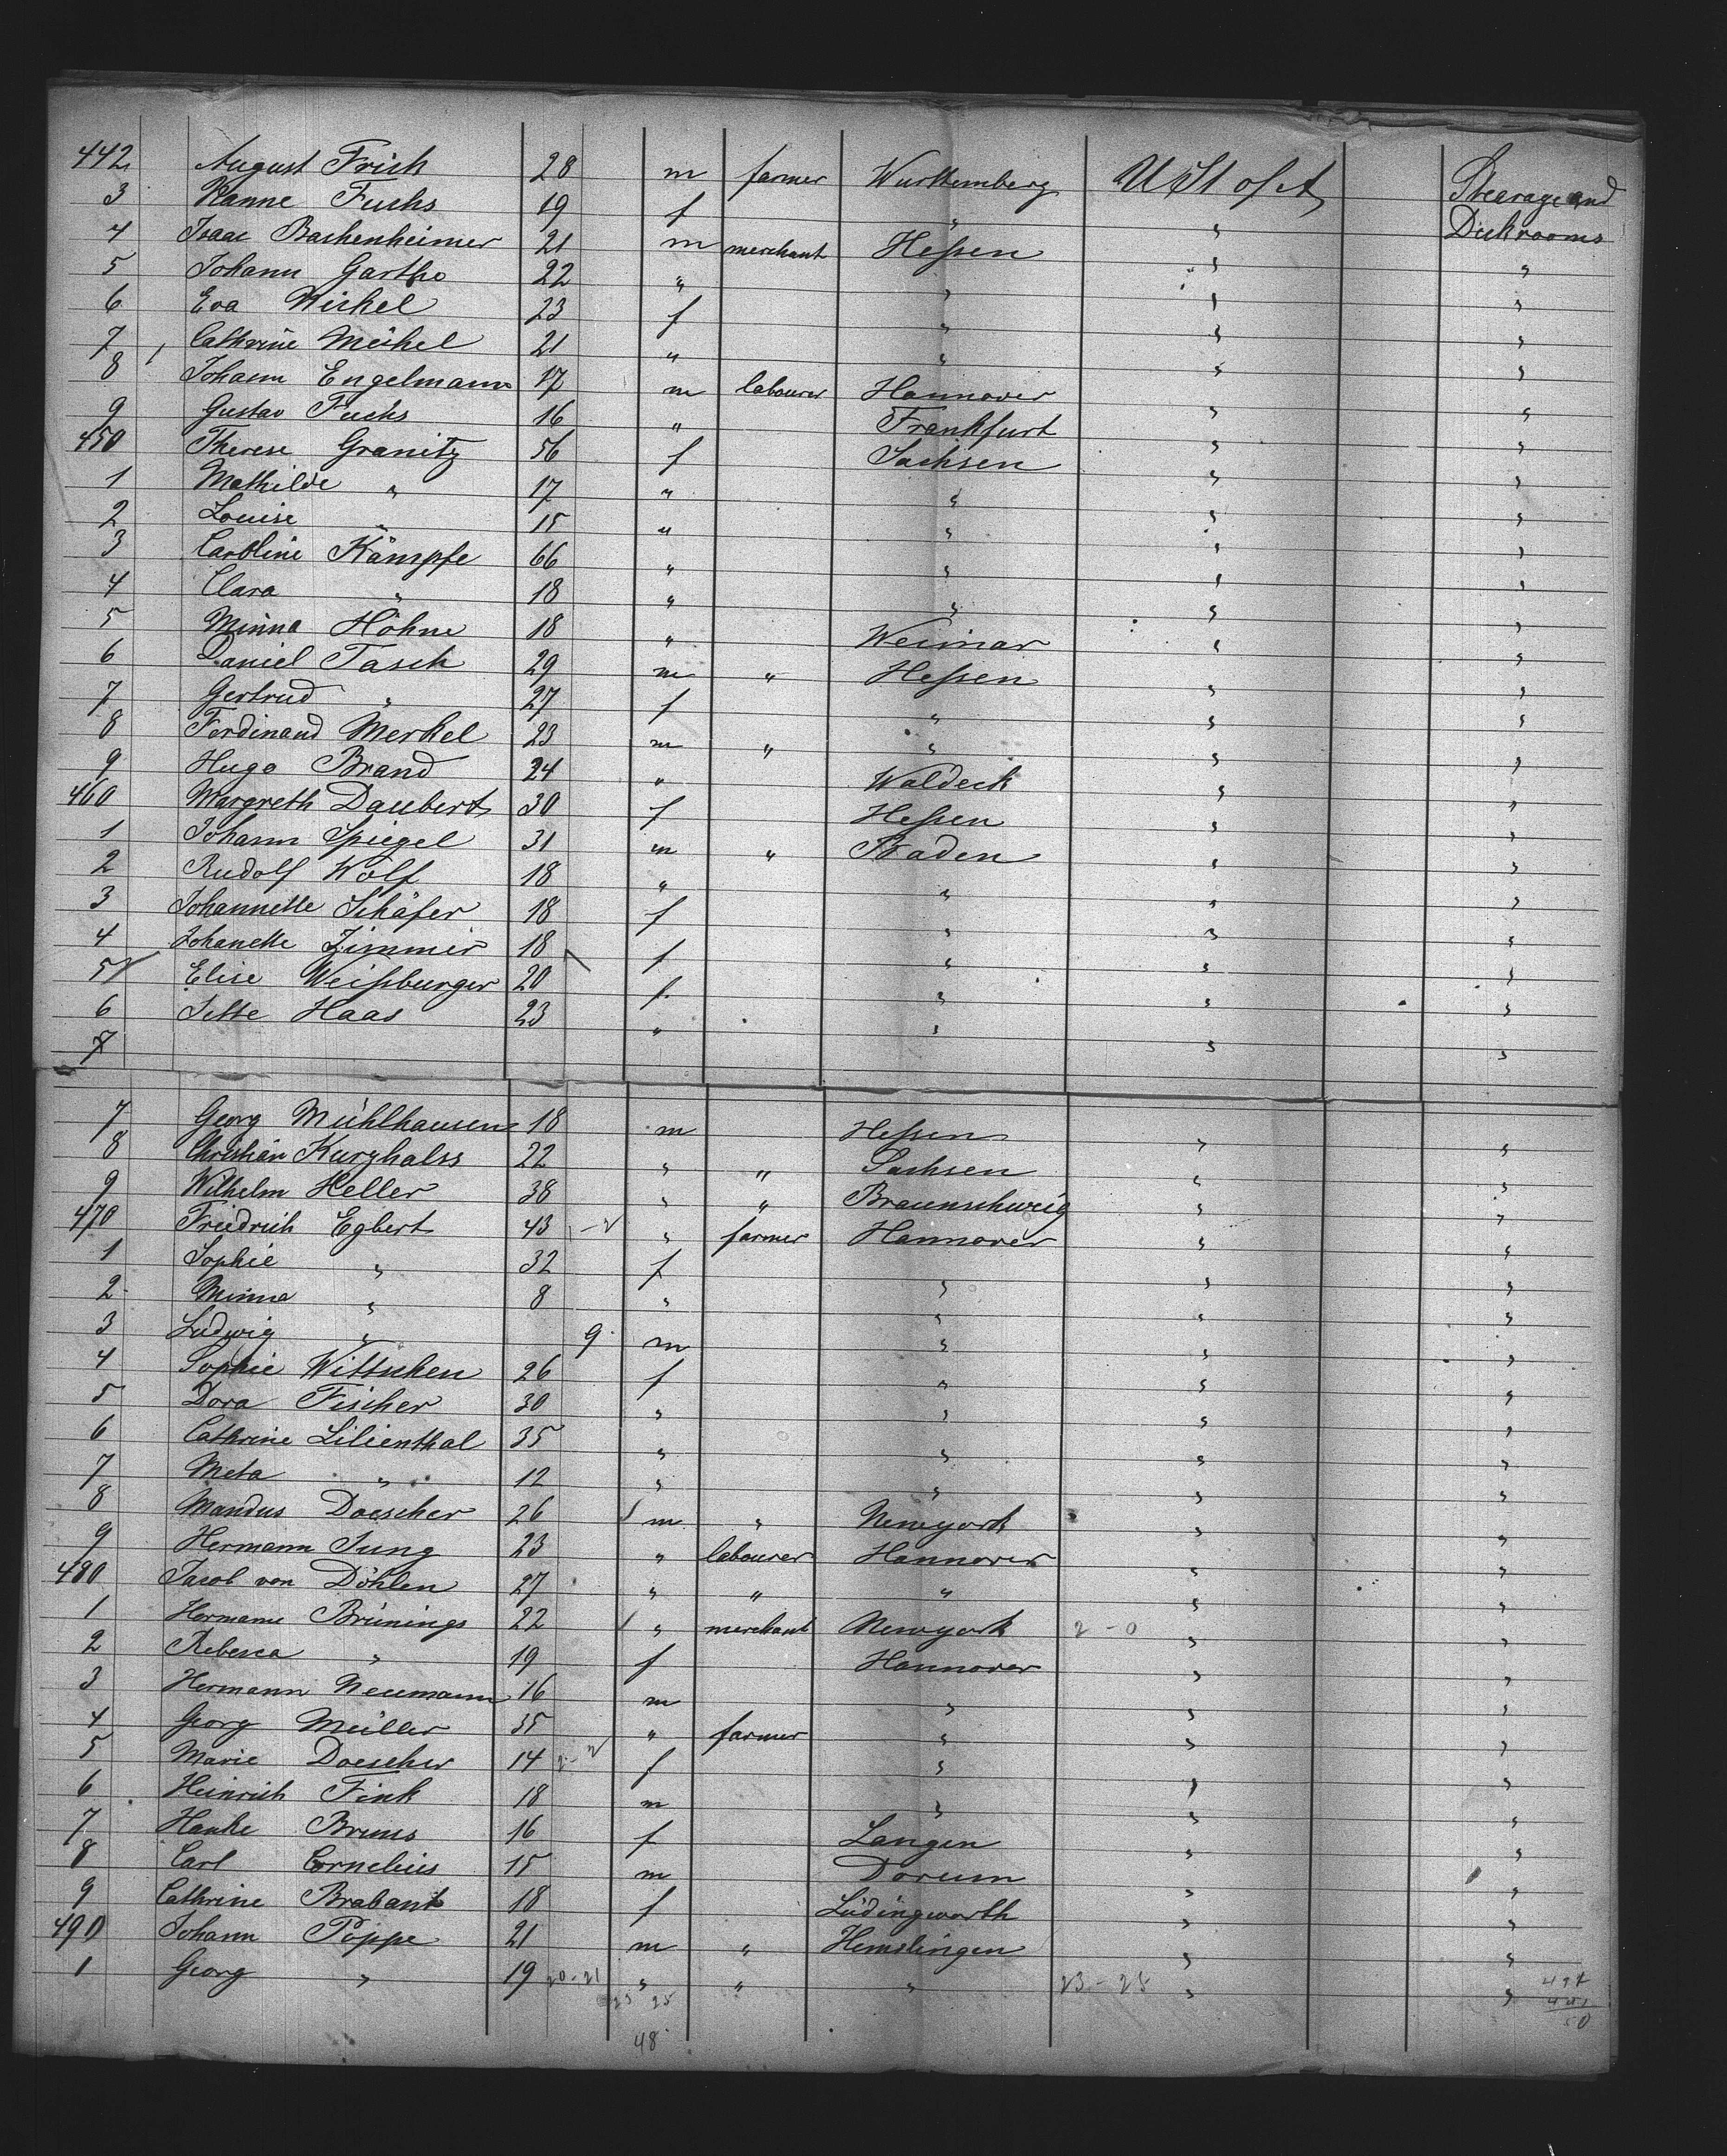 442 August Frich 28 m farmer Württemberg U St of A Stearage and
3 Hanne Fuchs 19 f " " Deckrooms
4 Isaac Bachenheimer 21 m merchant Hessen " "
5 Johann Garthe 22 " " " "
6 Eva Michel 23 f " " "
7 Cathrine Michel 21 " " " "
8 Johann Engelmann 17 m labourer Hannover " "
9 Gustav Fuchs 16 " Frankfurt " "
450 Therese Granitz 56 f Sachsen " "
1 Mathilde " 17 " " " "
2 Louise " 15 " " " "
3 Caroline Kämpfe 66 " " " "
4 Clara " 18 " " " "
5 Minna Höhne 18 " Weimar " "
6 Daniel Tasch 29 m " Hessen " "
7 Gertrud " 27 f " " "
8 Ferdinand Merkel 23 m " " " "
9 Hugo Brand 24 " Waldeck " "
460 Margreth Daubert 30 f Hessen " "
1 Johann Spiegel 31 m " Baden " "
2 Rudolf Wolf 18 " " " "
3 Johannette Schäfer 18 f " " "
4 Johanette Zimmer 18 f " " "
5 Elise Weissburger 20 f " " "
6 Jette Haas 23 " " " "
7
7 Georg Mühlhausen 18 m Hessen " "
8 Christian Kurzhalss 22 " " Sachsen " "
9 Wilhelm Heller 38 " " Braunschweig " "
470 Friedrich Egbert 43 " farmer Hannover " "
1 Sophie " 32 f " " "
2 Minna " 8 " " " "
3 Ludwig " 9 m " " "
4 Sophie Wittschen 26 f " " "
5 Dora Fischer 30 " " " "
6 Cathrine Lilienthal 35 " " " "
7 Meta " 12 " " " "
8 Mandus Doescher 26 m " Newyork " "
9 Hermann Jung 23 " labourer Hannover " "
480 Jacob von Döhlen 27 " " " " "
1 Hermann Brünings 22 " merchant Newyork 2-0 " "
2 Rebecca " 19 f Hannover " "
3 Hermann Neumann 16 m " " "
4 Georg Müller 35 " farmer " " "
5 Marie Doescher 14 f " " "
6 Heinrich Fink 18 m " " "
7 Hanke Bruns 16 f Langen " "
8 Carl Cornelius 15 m Dorum " "
9 Cathrine Brabant 18 f Lüdingworth " "
490 Johann Poppe 21 m " Hemslingen " "
1 Georg " 19 20-21 " " " 23-25 " "
23 25
48